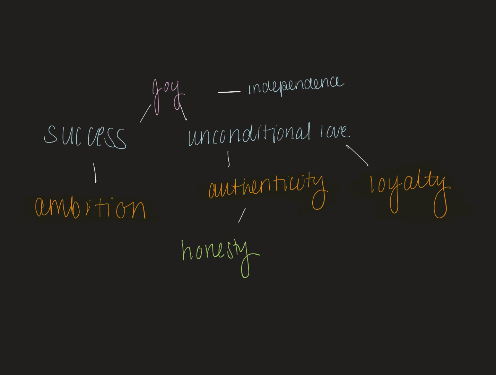 joy
independence
success
unconditional love
ambition
authenticity
loyalty
honesty